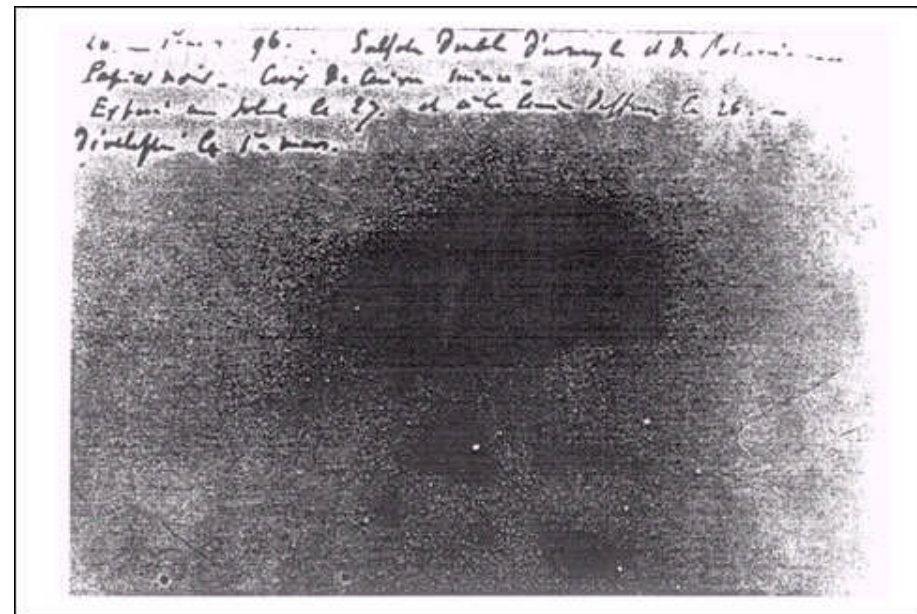 1er 96. Sulfate Double D'uranyle et De Potassium
Papier noir. Croix De Cuivre mince -
Exposé au soleil le 27. et à la lumière diffuse le 26. -
Développé le 1er mars.